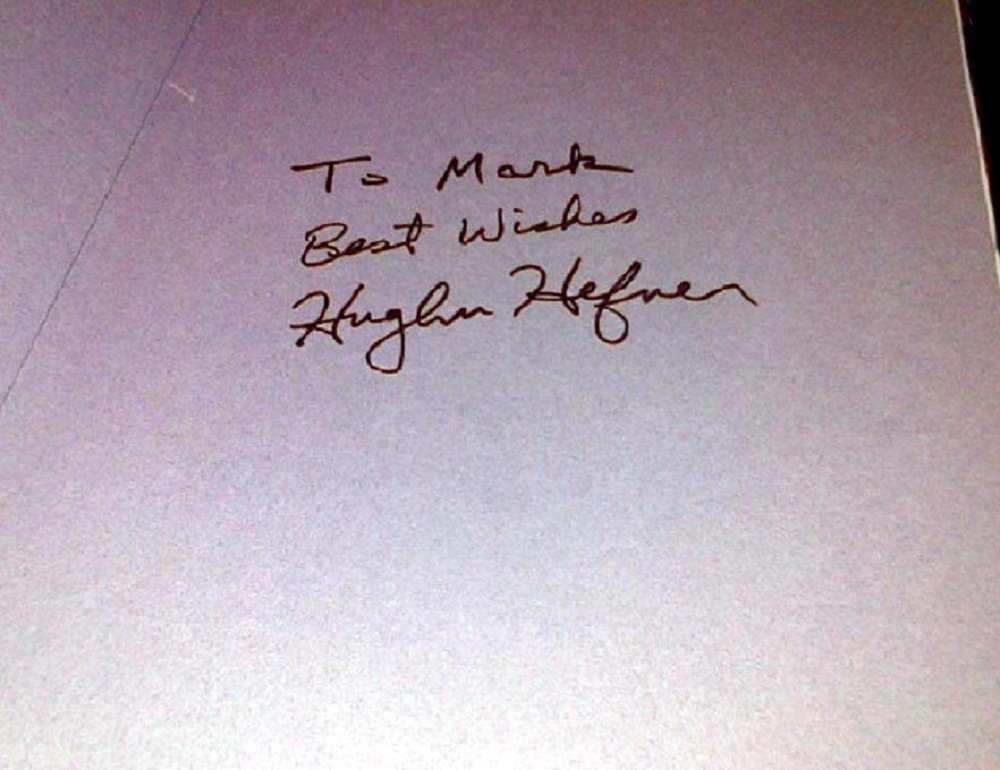 To Mark
Best Wishes
Hugh Hefner